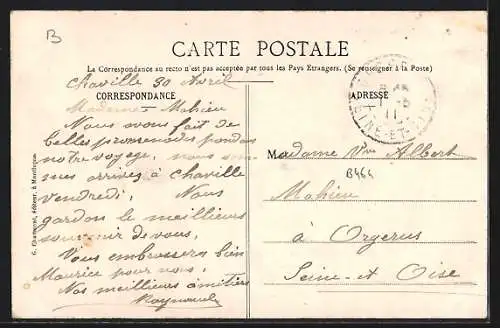 B
CARTE POSTALE
La Correspondance au recto n'est pas acceptée par tous les Pays Etrangers. (Se renseigner à la Poste)
Chaville 30 Avril
CORRESPONDANCE
Madame Mahieu
Nous avons fait de
belles promenades pendant
notre voyage, nous
arrivés à Chaville
vendredi. Nous
gardon le meilleurs
souvenir de vous,
Vous embrassera bien
Maurice pour nous,
Nos meilleurs amitiés
Raynaud
ADRESSE
11
SEINE-ET-OISE
Madame Vve Albert
B464
Mahieu
à Orgerus
Seine-et Oise
éditeur, à